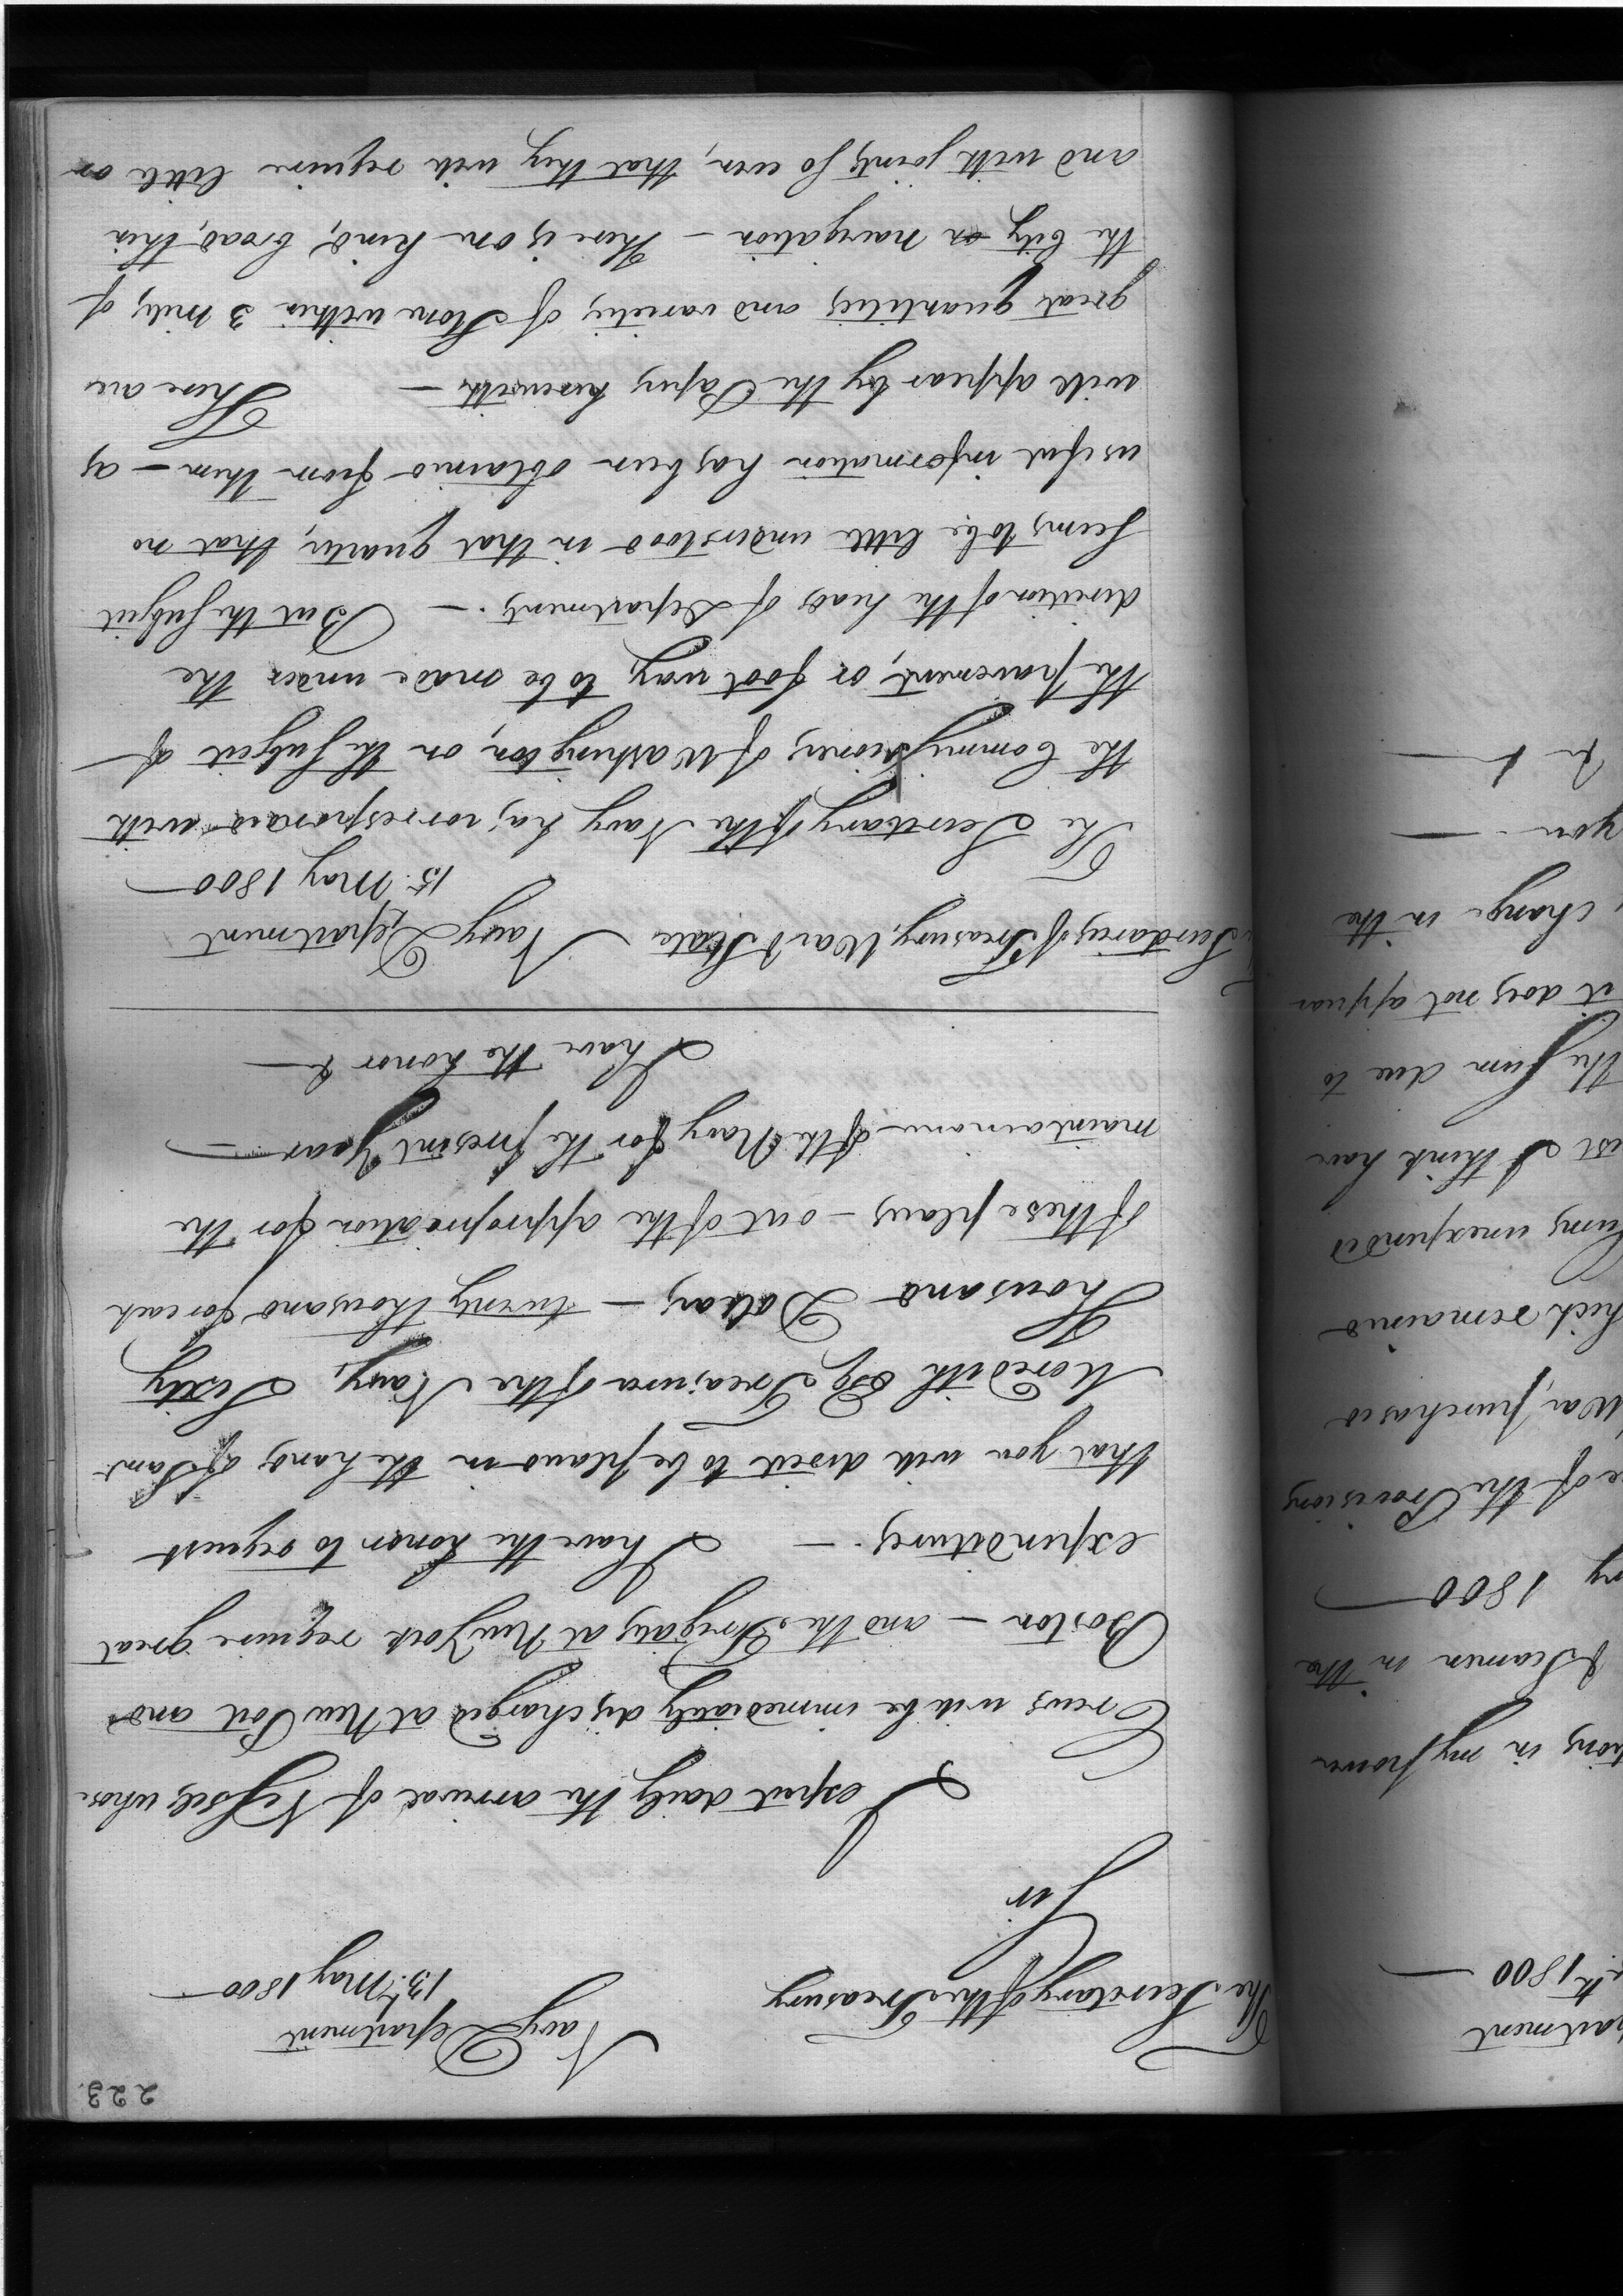 223.
Navy Department
The Secretary of the Treasury
13th May 1800 —
Sir
I expect daily the arrival of Vessels whose
Crews will be immediately discharged at New Port and
Boston — and the Frigates at New York require great
expenditures. — I have the honor to request
that you will direct to be placed in the hands of Saml
Meredith Esq Treasurer of the Navy, Sixty
Thousand Dollars — twenty thousand for each
of these places — out of the appropriation for the
maintainance of the Navy for the present Year —
I have the honor &—
Secretarys of Treasury, War & State
Navy Department
15. May 1800 —
The Secretary of the Navy has corresponded with
the Commissioners of Washington, on the Subject of
the pavement, or foot way, to be made under the
direction of the heads of Departments. — But the Subject
seems to be little understood in that quarter, that no
useful information has been obtained from them — as
will appear by the Papers herewith — There are
great quantities and varieties of Stone within 3 miles of
the City or navigation — There is one kind, broad, thin
and with joints so even, that they will require little or
partment
1800 —
tions in my power
& Seamen in the
ry 1800 —
e of the Provisions
War, purchased
hich remained
Sums unexpended
est I think have
the sum due to
it does not appear
change in the
you —